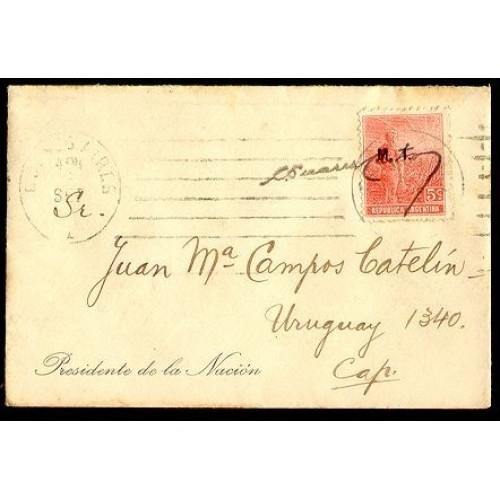 BUENOS AIRES
Sr.
M. J.
5c
REPUBLICA ARGENTINA
Juan Mª Campos Catelín
Uruguay 1340.
Cap.
Presidente de la Nación